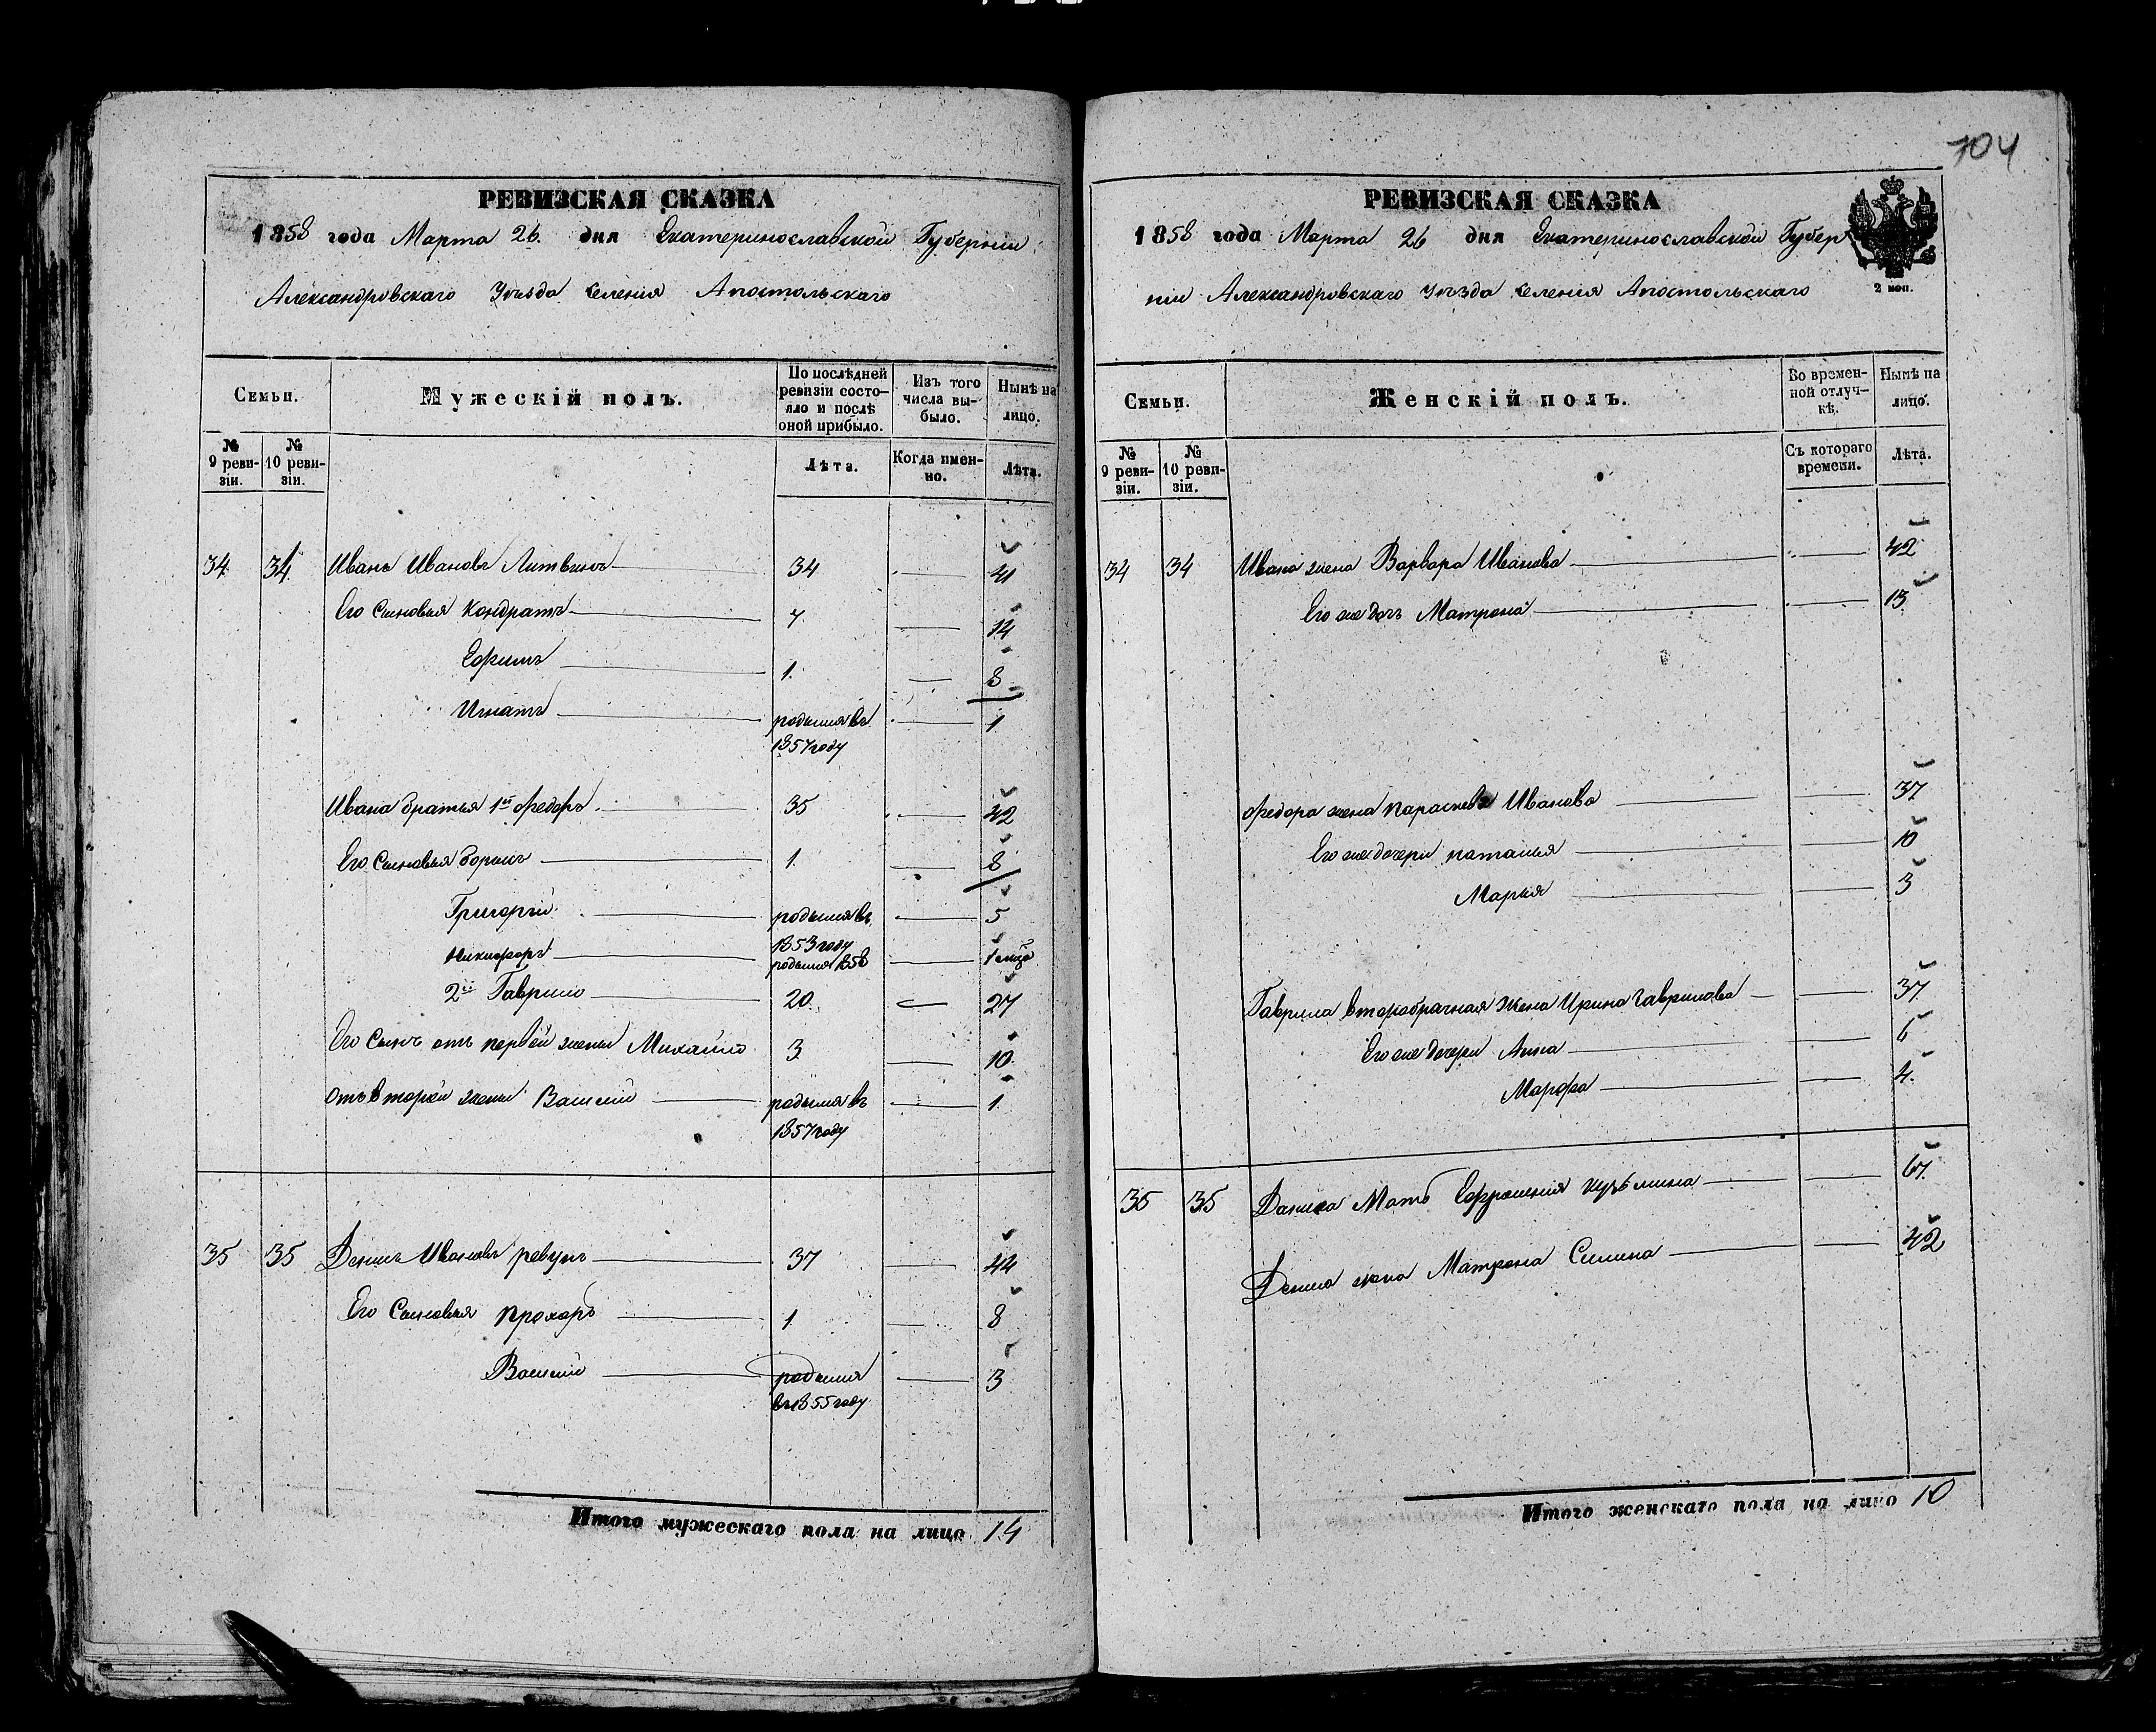 704
РЕВИЗСКАЯ СКАЗКА
1858 года Марта 26. дня Екатеринославской Губерніи
Александровскаго Уѣзда селенія Апостольскаго
Семьи.
Мужескій полъ.
По послѣдней ревизіи состо-
яло и послѣ
оной прибыло.
Изъ того
числа вы-
было.
Нынѣ на
лицо.
№
9 реви-
зіи.
№
10 реви-
зіи.
Лѣта.
Когда имен-
но.
Лѣта.
34. 34. Иванъ Ивановъ Литвинъ 34 41
Его Сыновья Кондратъ 7 14
Ефимъ 1. 8
Игнатъ родился въ 1
1857 году
Ивана братья 1й Федоръ 35 42
Его Сыновья Борисъ 1. 8
Григорій родился въ 5
1853 году
Никифоръ родился 1858 1 мѣся
2й Гаврило 20. 27
Его Сынъ отъ первой жены Михайло 3 10.
Отъ второй жены Василій родился въ 1
1857 году
35 35 Денисъ Ивановъ ревунъ 37 44
Его Сыновья Прохоръ 1. 8
Василій родился 3
въ 1855 году
Итого мужескаго пола на лицо 14
РЕВИЗСКАЯ СКАЗКА
1858 года Марта 26 дня Екатеринославской Губер
ніи Александровскаго Уѣзда селенія Апостольскаго
2 коп.
Семьи.
Женскій полъ.
Во времен-
ной отлуч-
кѣ.
Нынѣ на
лицо.
№
9 реви-
зіи.
№
10 реви-
зіи.
Съ котораго
времени.
Лѣта.
34 34 Ивана жена Варвара Иванова 42
Его же дочь Матрена 13
Федора жена Параскева Иванова 37
Его же дочери наталья 10
Марья 3
Гаврила второбрачная жена Ирина Гаврилова 37
Его же дочери Анна 6
Марфа 4.
35 35 Дениса Мать Ефросинія кузьмина 67.
Дениса жена Матрена Силина 42
Итого женскаго пола на лицо 10